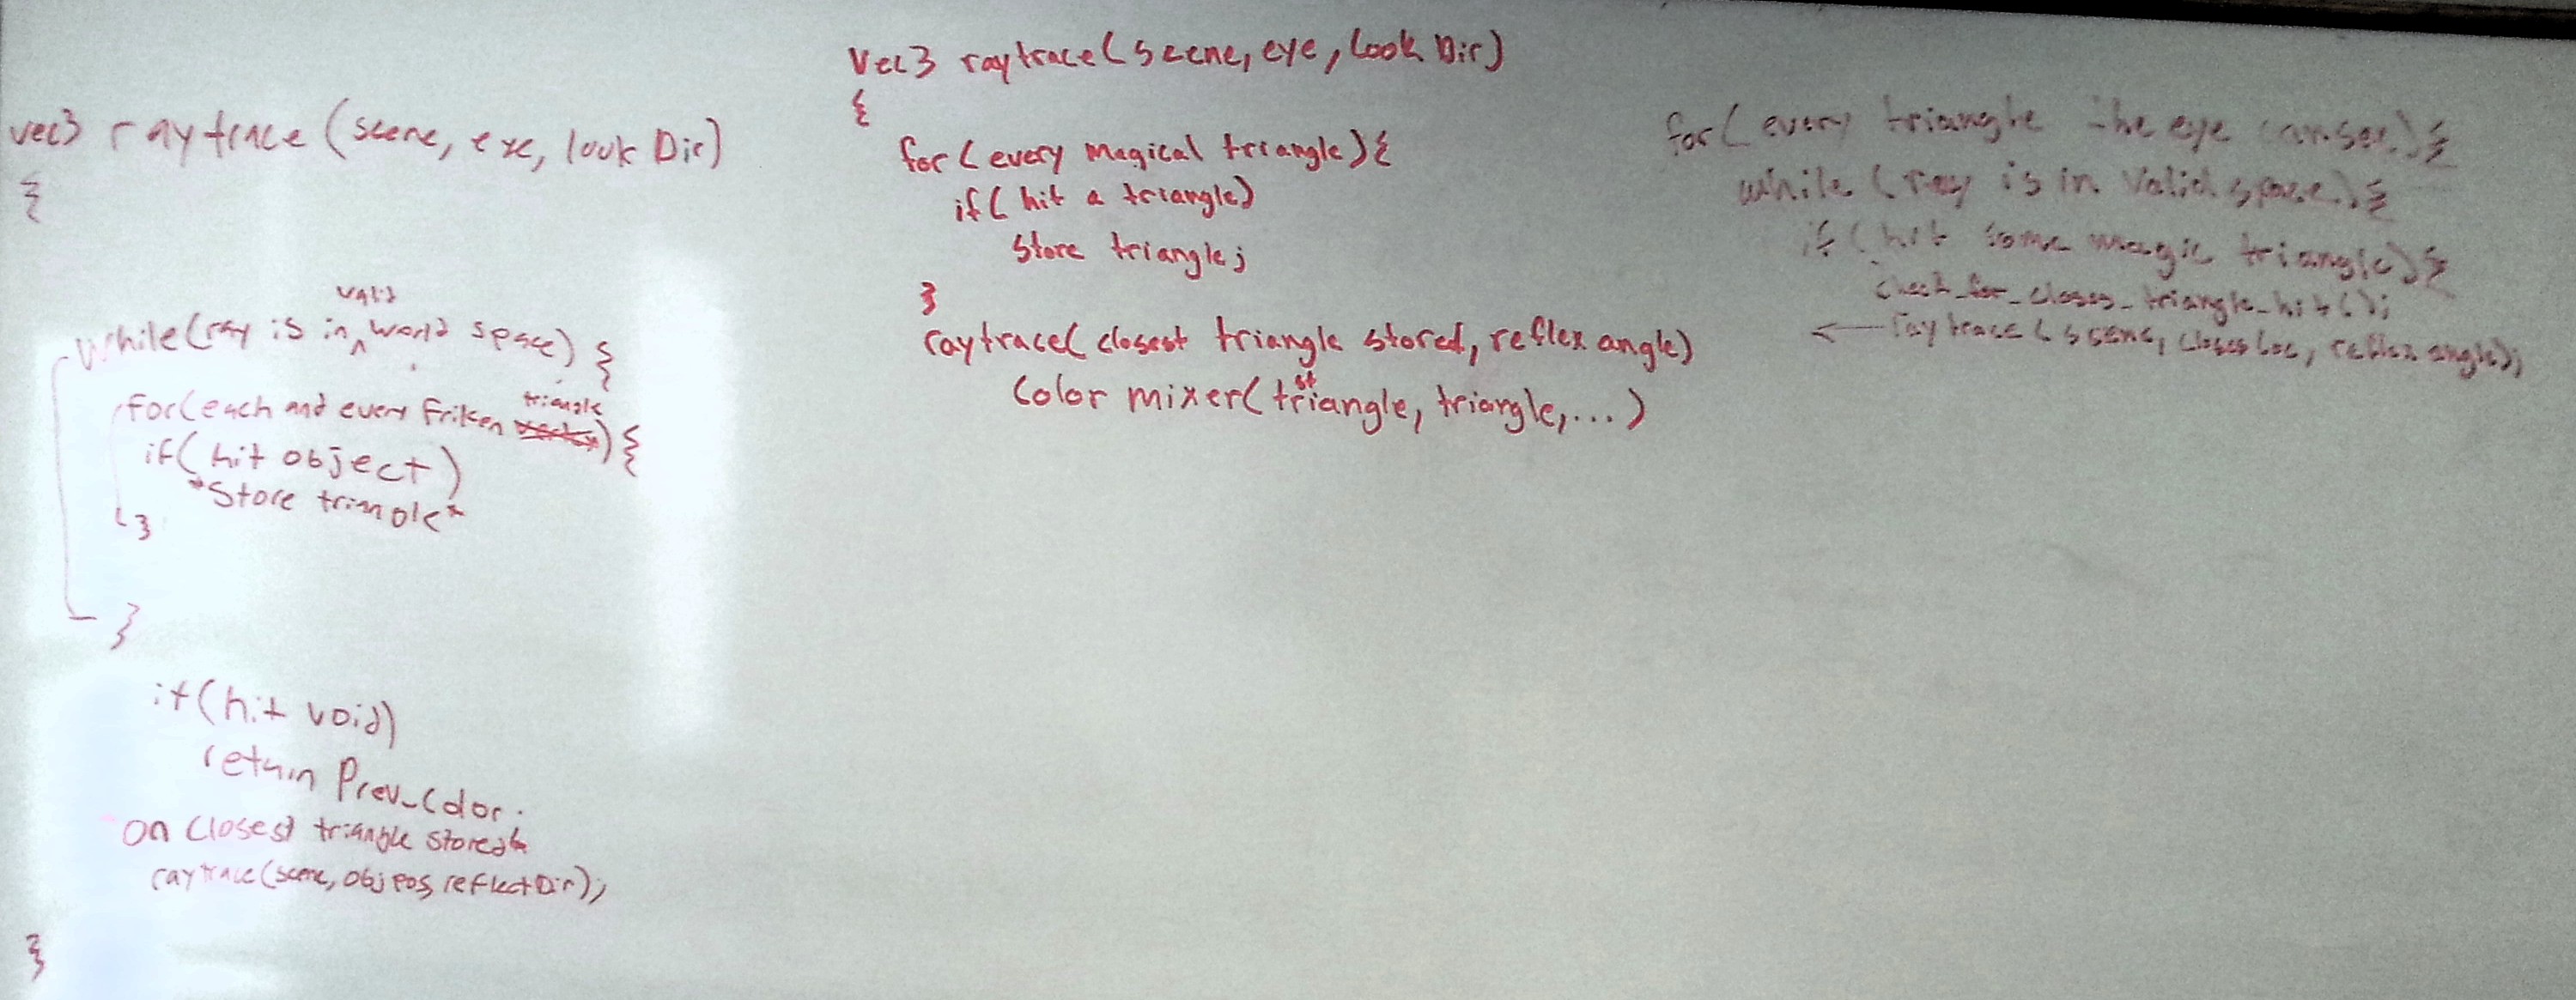 vec3 raytrace (scene, eye, look Dir)
{
valid
while(ray is in ^ world space) {
triangle
for(each and every friken) {
if( hit object )
*Store triangle*
}
}
if(hit void)
return Prev_Color.
on closest triangle stored*
raytrace(scene, obj pos, reflectDir);
}
Vec3 raytrace( scene, eye, look Dir)
{
for( every magical triangle){
if( hit a triangle)
Store triangle;
}
raytrace( closest triangle stored, reflex angle)
Color mixer( triangle, triangle,...)
for( every triangle the eye can see ){
while (ray is in valid space){
if (hit some magic triangle){
check_for_closes_triangle_hit();
<— raytrace( scene, closes loc, reflex angle);